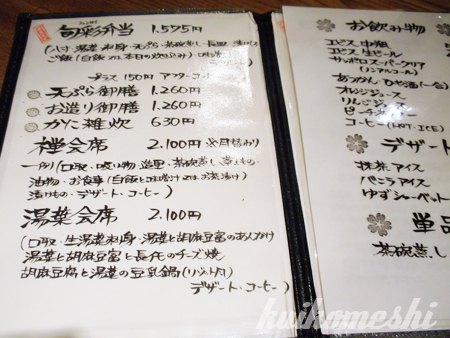 旬彩弁当 1.575円
(八寸 湯葉刺身・天ぷら・茶碗蒸し
プラス 150円 アフターコーヒー
天ぷら御膳 1.260円
お造り御膳 1.260円
かに雑炊 630円
会席 2.100円 ※月替わり
一例(口取・吸い物・造里・茶碗蒸し・蒸しもの・
油物・お食事(白飯と味噌汁 又は お茶漬け)
漬けもの・デザート・コーヒー)
湯葉会席 2.100円
(口取・生湯葉刺身・湯葉と胡麻豆富のあんかけ
湯葉と胡麻豆富と長芋のチーズ焼
胡麻豆腐と湯葉の豆乳鍋(リゾット入)
デザート・コーヒー)
お飲み物
エビス中瓶
エビス生ビール
サッポロスーパークリア
(ノンアルコール)
あつかん・ひや酒(一合)
オレンジジュース
りんごジュース
ピーチジュース
コーヒー(HOT・ICE)
デザート
抹茶アイス
バニラアイス
ゆずシャーベット
単品
茶碗蒸し
kuihomeshi